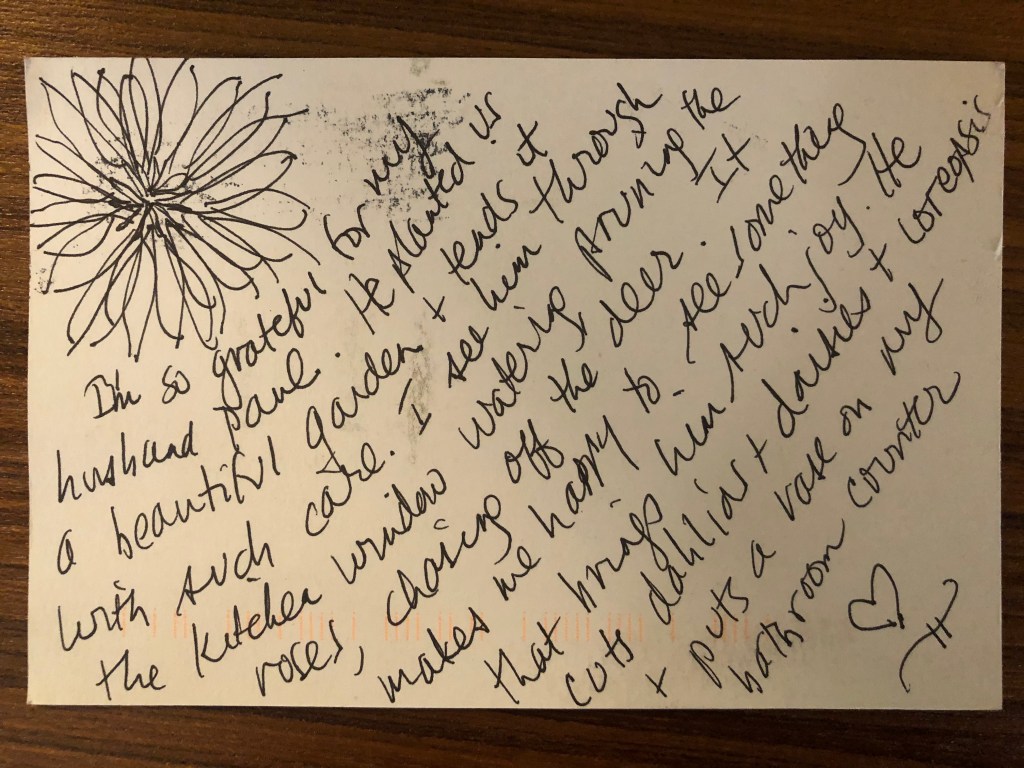 I'm so grateful for my
husband Paul. He planted us
a beautiful garden + tends it
with such care. I see him through
the kitchen window watering, pruning the
roses, chasing off the deer. It
makes me happy to see something
that brings him such joy. He
cuts dahlias + daisies + coreopsis
+ puts a vase on my
bathroom counter
♡
H